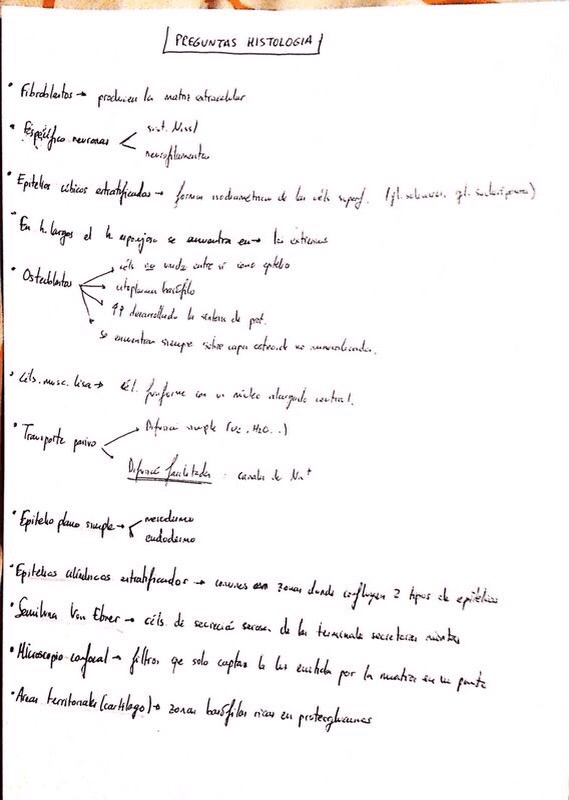 PREGUNTAS HISTOLOGIA
• Fibroblastos → producen la matriz extracelular
• Específico neuronas < sust. Nissl
neurofilamentos
• Epitelios cúbicos estratificados → forma isodiamétrica de las céls superf. (gl. salivares, gl. sudoríparas)
• En h. largos el h. esponjoso se encuentra en → los extremos
• Osteoblastos
céls no unidas entre sí como epitelio
citoplasma basófilo
desarrollado la síntesis de prot.
Se encuentran siempre sobre capa osteoide no mineralizada.
• Céls. musc. lisa → cél. fusiforme con un núcleo alargado central.
• Transporte pasivo
Difusió simple (O2, H2O...)
Difusió facilitada: canales de Na+
• Epitelio plano simple → mesodermo
endodermo
• Epitelios cilíndricos estratificados → comunes en zonas donde confluyen 2 tipos de epitelios
• Semiluna Von Ebner → céls. de secreció serosa de las terminales secretoras mixtas
• Microscopio confocal → filtros que solo captan la luz emitida por la muestra en un punto
• Áreas territoriales (cartílago) → zonas basófilas ricas en proteoglucanos